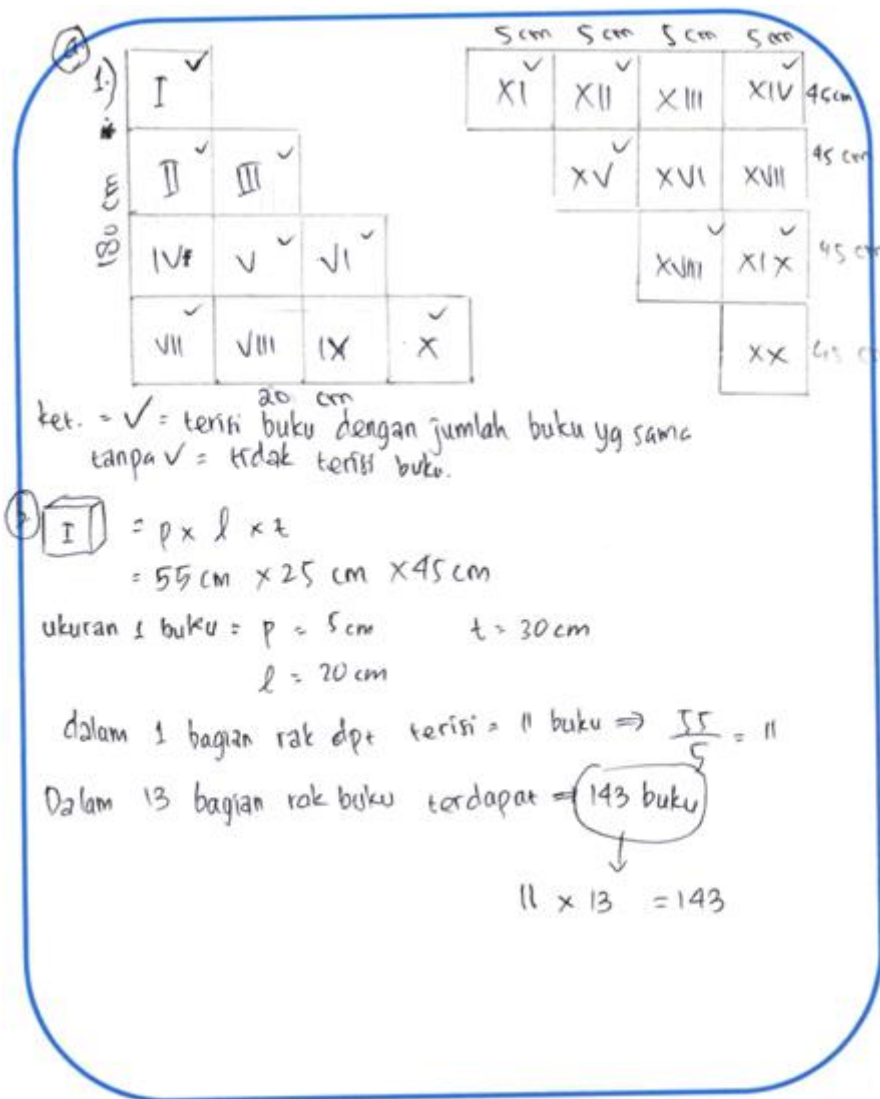 a
1.)
I ✓
II ✓ III ✓
IV V ✓ VI ✓
VII ✓ VIII IX X ✓
180 cm
20 cm
5 cm 5 cm 5 cm 5 cm
XI ✓ XII ✓ XIII XIV ✓ 45cm
XV ✓ XVI XVII 45 cm
XVIII ✓ XIX ✓ 45 cm
XX 45 cm
ket. = ✓ = terisi buku dengan jumlah buku yg sama
tanpa ✓ = tidak terisi buku.
I = p x l x t
= 55 cm x 25 cm x 45 cm
ukuran 1 buku = p = 5 cm t = 30 cm
l = 20 cm
dalam 1 bagian rak dpt terisi = 11 buku ⇒ 55/5 = 11
Dalam 13 bagian rak buku terdapat = 143 buku
11 x 13 = 143